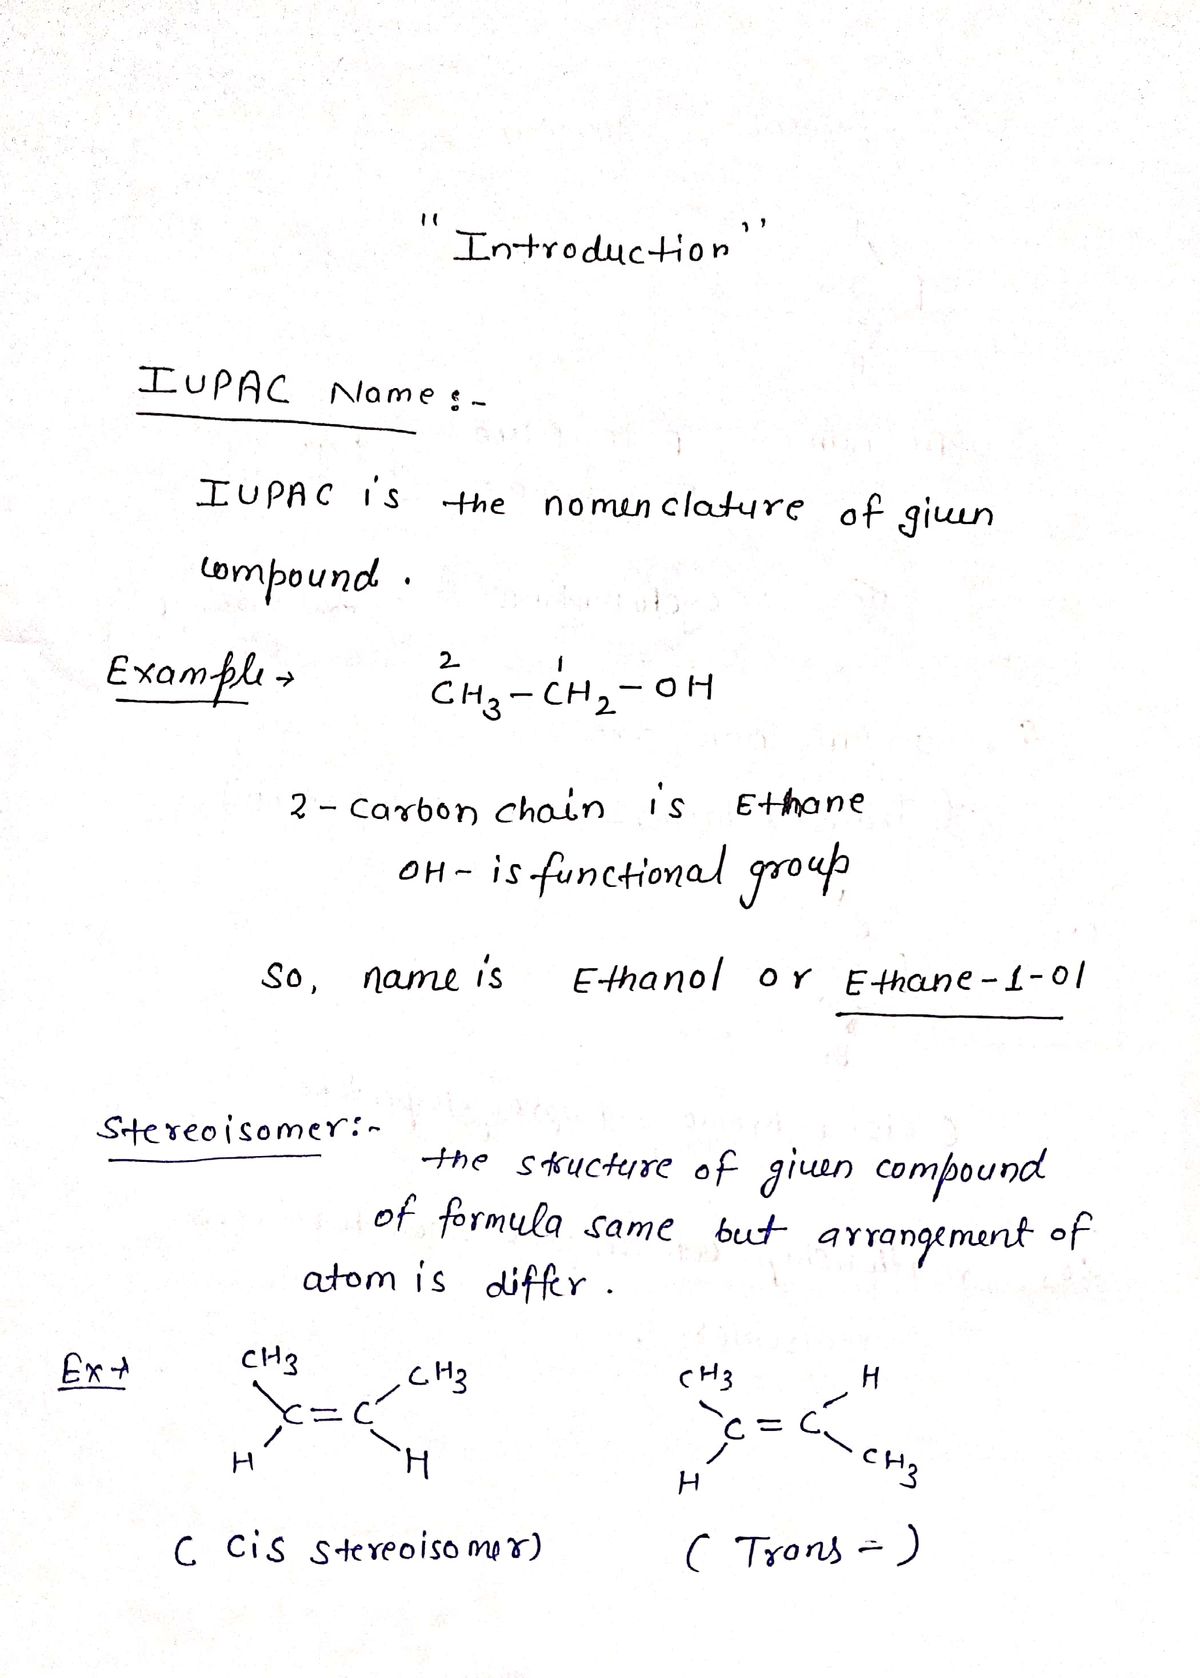 "Introduction"
IUPAC Name :-
IUPAC is the nomenclature of given
compound .
Example → 2CH3 - 1CH2 - OH
2 - carbon chain is Ethane
OH - is functional group
So, name is Ethanol or Ethane-1-ol
Stereoisomer :-
the structure of given compound
of formula same but arrangement of
atom is differ .
Ex →
CH3 CH3 CH3 H
C = C C = C
H H H CH3
( Cis stereoisomer) ( Trans = )